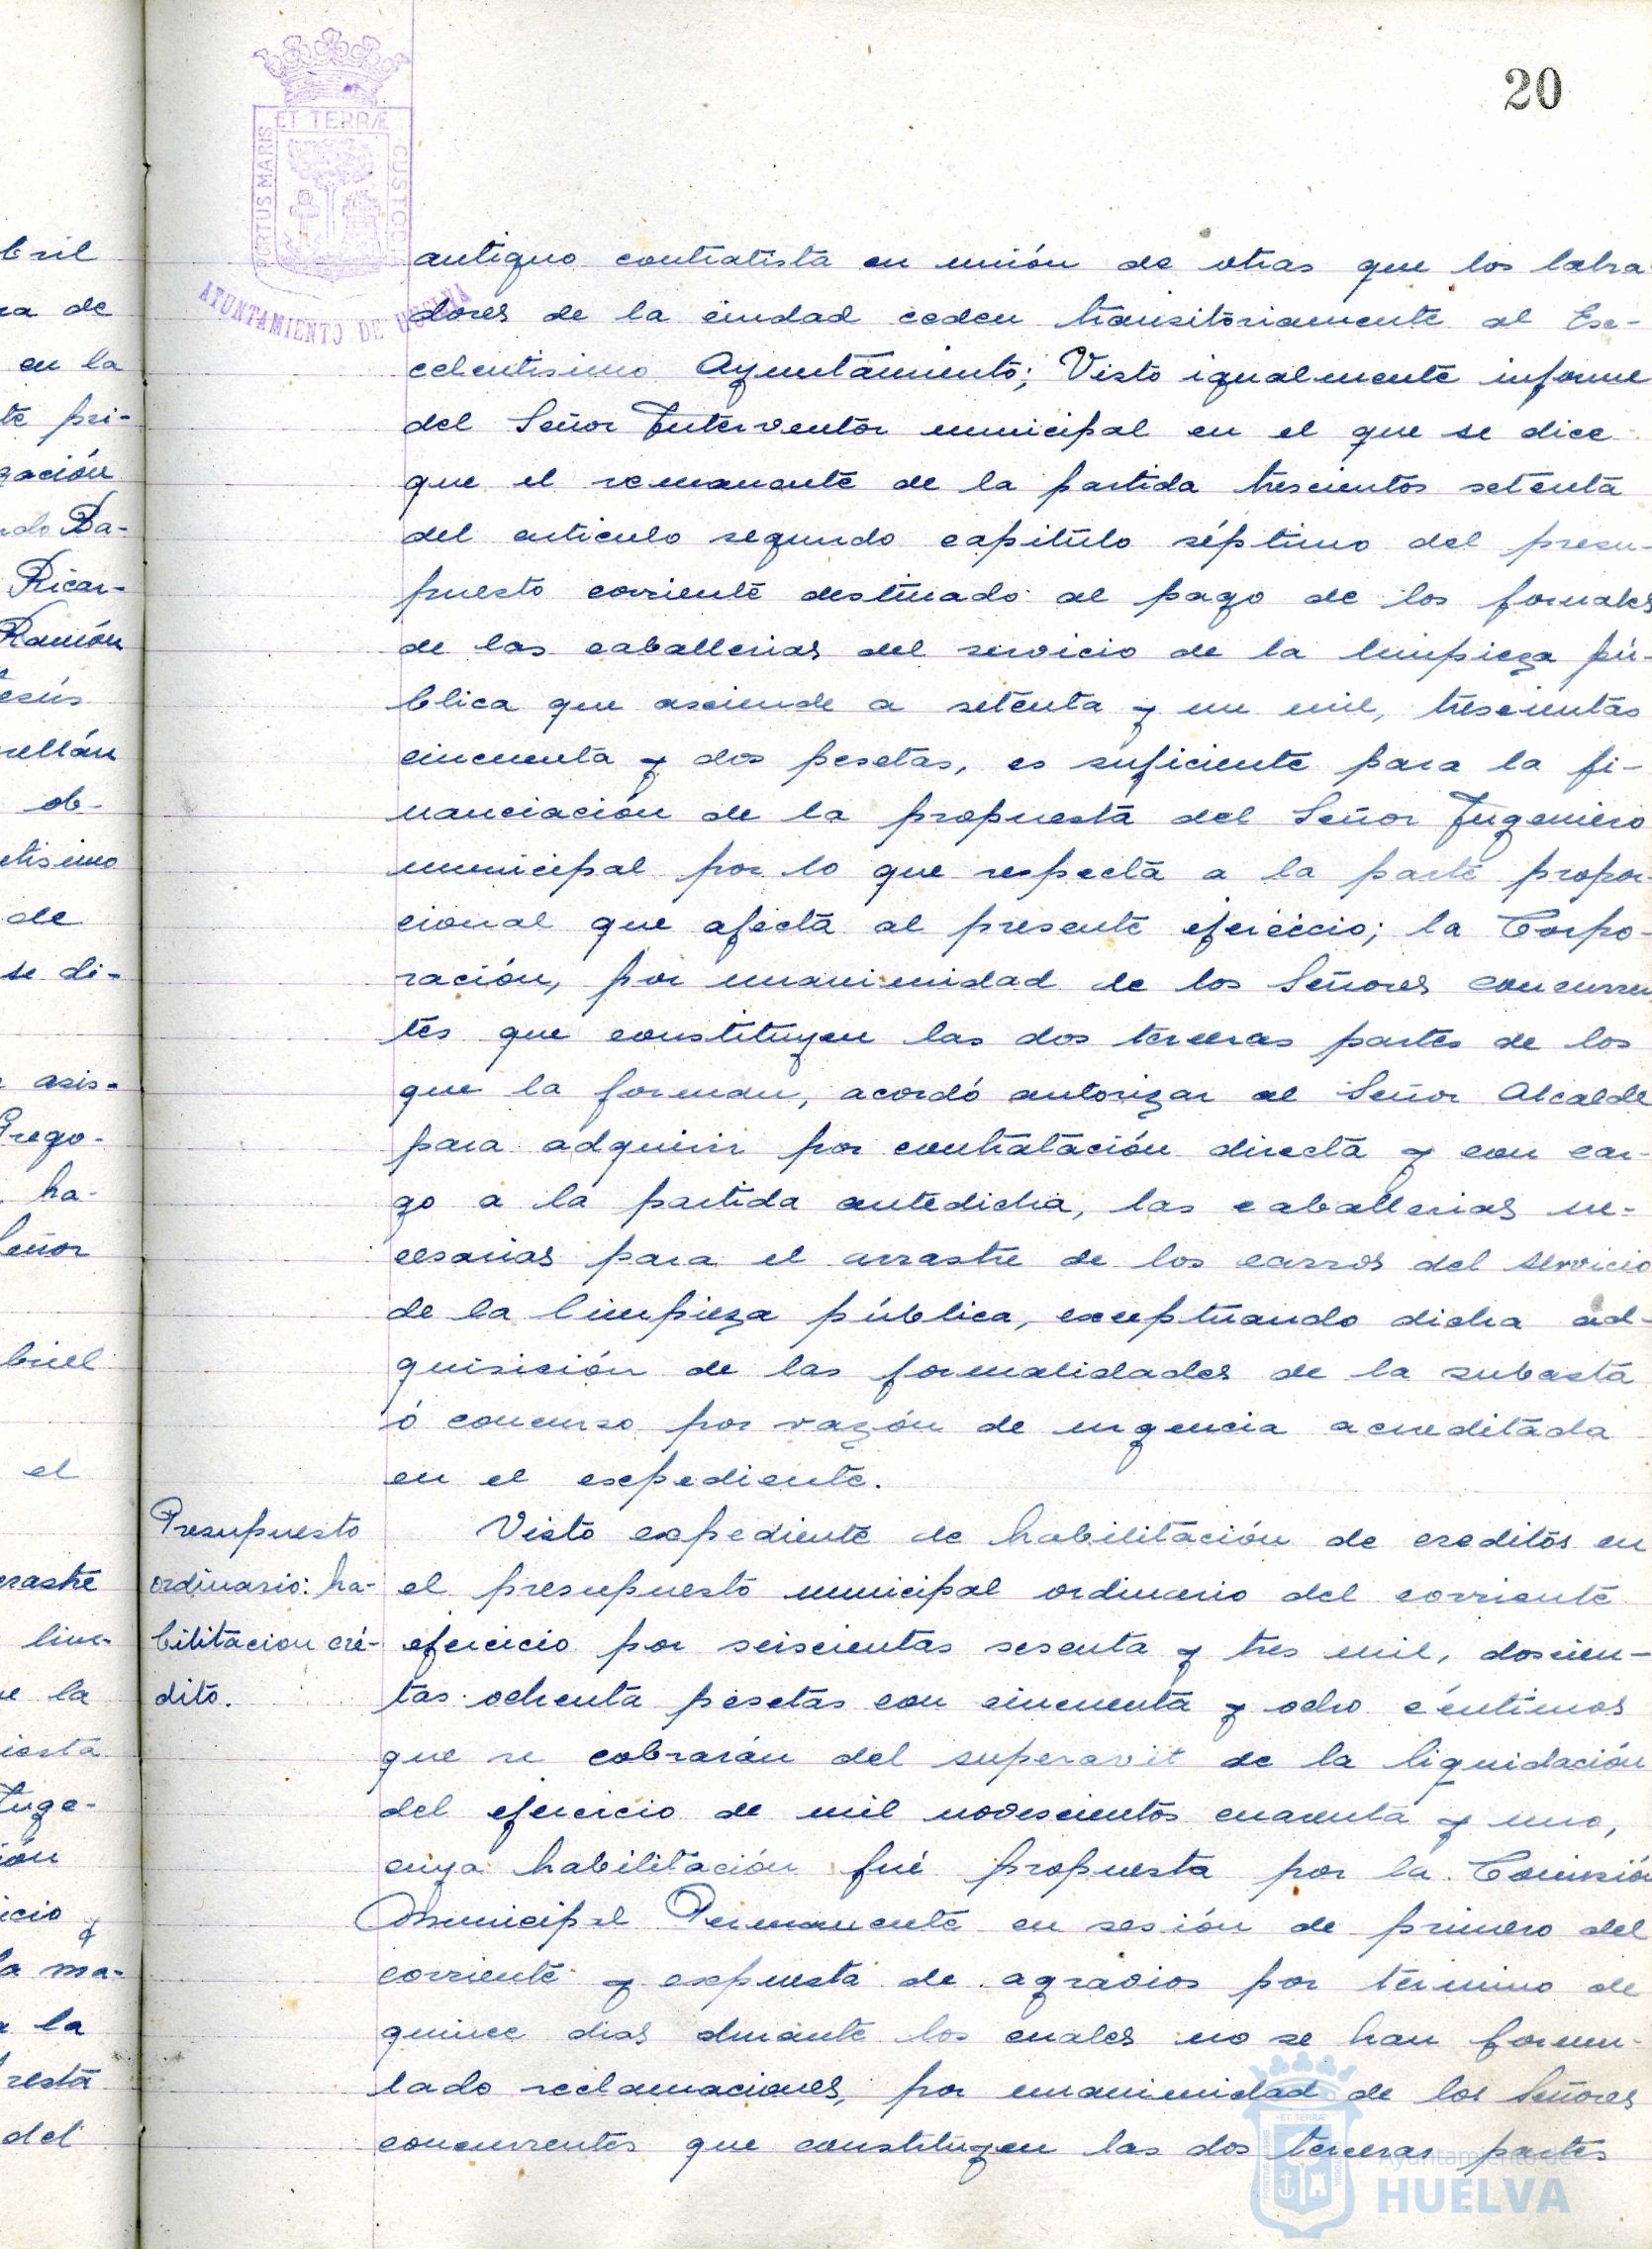 20
PORTUS MARIS ET TERRÆ CUSTODI
AYUNTAMIENTO DE HUELVA
bril
ra de
en la
te pri-
gación
ndo Ba-
Ricar-
Ramón
esús
rellán
ob-
tisimo
de
se di-
asis-
Prego-
ha-
Señor
briel
el
rrastre
lim-
e la
iesta
Inge-
ión
icio y
la ma-
a la
resta
del
antiguo contratista en unión de otras que los labra
dores de la ciudad ceden transitoriamente al Exc-
celentisimo Ayuntamiento; Visto igualmente informe
del Señor Interventor municipal en el que se dice
que el remanente de la partida trescientos setenta
del articulo segundo capitulo séptimo del presu-
puesto corriente destinado al pago de los jornales
de las caballerias del servicio de la limpieza pú-
blica que asciende a setenta y un mil, trescientas
cincuenta y dos pesetas, es suficiente para la fi-
nanciación de la propuesta del Señor Ingeniero
municipal por lo que respecta a la parte propor-
cional que afecta al presente ejercicio; la Corpo-
ración, por unanimidad de los Señores concurren
tes que constituyen las dos terceras partes de los
que la forman, acordó autorizar al Señor Alcalde
para adquirir por contratación directa y con car-
go a la partida antedicha, las caballerias ne-
cesarias para el arrastre de los carros del servicio
de la limpieza pública, exceptuando dicha ad-
quisición de las formalidades de la subasta
ó concurso por razón de urgencia acreditada
en el expediente.
Presupuesto
ordinario: ha-
bilitacion cré-
dito.
Visto expediente de habilitación de creditos en
el presupuesto municipal ordinario del corriente
ejercicio por seiscientas sesenta y tres mil, doscien-
tas ochenta pesetas con cincuenta y ocho céntimos
que se cobrarán del superavit de la liquidación
del ejercicio de mil novescientos cuarenta y uno,
cuya habilitación fué propuesta por la Comisión
Municipal Permanente en sesión de primero del
corriente y expuesta de agravios por término de
quince dias durante los cuales no se han formu-
lado reclamaciones, por unanimidad de los Señores
concurrentes que constituyen las dos terceras partes
Ayuntamiento de
HUELVA